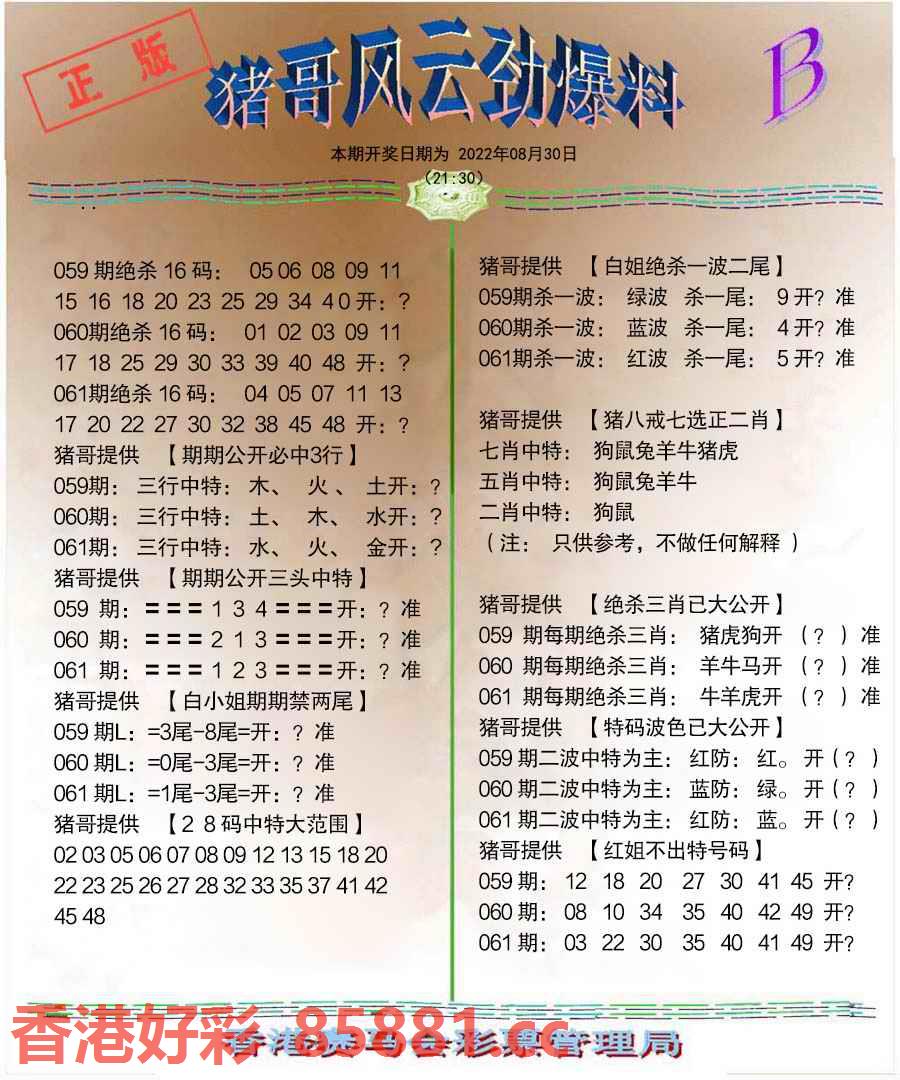 正版
猪哥风云劲爆料
B
本期开奖日期为 2022年08月30日
(21:30)
059期绝杀16码： 05 06 08 09 11
15 16 18 20 23 25 29 34 40开：?
060期绝杀16码： 01 02 03 09 11
17 18 25 29 30 33 39 40 48 开：?
061期绝杀16码： 04 05 07 11 13
17 20 22 27 30 32 38 45 48 开：?
猪哥提供 【期期公开必中3行】
059期：三行中特：木、 火 、 土开：?
060期：三行中特：土、 木、 水开：?
061期：三行中特：水、 火、 金开：?
猪哥提供 【期期公开三头中特】
059 期：===134===开：? 准
060 期：===213===开：? 准
061 期：===123===开：? 准
猪哥提供 【白小姐期期禁两尾】
059期L：=3尾-8尾=开：? 准
060期L：=0尾-3尾=开：? 准
061期L：=1尾-3尾=开：? 准
猪哥提供 【28码中特大范围】
02 03 05 06 07 08 09 12 13 15 18 20
22 23 25 26 27 28 32 33 35 37 41 42
45 48
猪哥提供 【白姐绝杀一波二尾】
059期杀一波： 绿波 杀一尾： 9开? 准
060期杀一波： 蓝波 杀一尾： 4开? 准
061期杀一波： 红波 杀一尾： 5开? 准
猪哥提供 【猪八戒七选正二肖】
七肖中特： 狗鼠兔羊牛猪虎
五肖中特： 狗鼠兔羊牛
二肖中特： 狗鼠
（注： 只供参考，不做任何解释 ）
猪哥提供 【绝杀三肖已大公开】
059 期每期绝杀三肖： 猪虎狗开 （？）准
060 期每期绝杀三肖： 羊牛马开 （？）准
061 期每期绝杀三肖： 牛羊虎开 （？）准
猪哥提供 【特码波色已大公开】
059期二波中特为主：红防：红。开(？)
060期二波中特为主：蓝防：绿。开(？)
061期二波中特为主：红防：蓝。开(？)
猪哥提供 【红姐不出特号码】
059期： 12 18 20 27 30 41 45 开?
060期： 08 10 34 35 40 42 49 开?
061期： 03 22 30 35 40 41 49 开?
香港好彩 85881.cc
香港赛马会彩票管理局